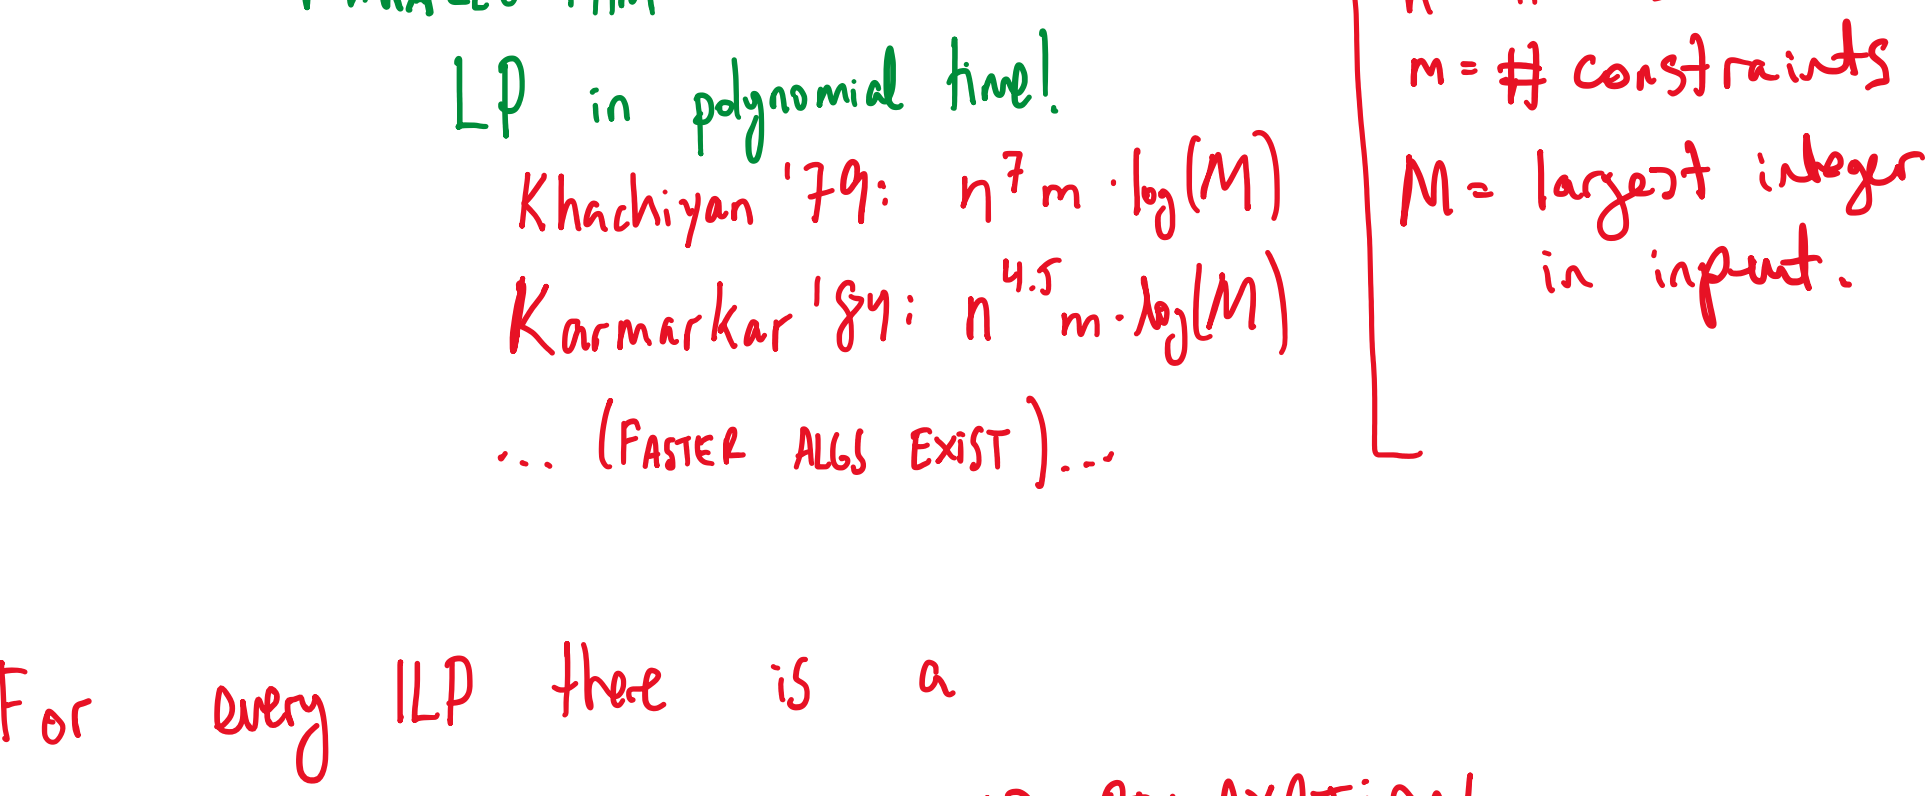 LP in polynomial time!
Khachiyan '79: n^7 m · log(M)
Karmarkar '84: n^4.5 m · log(M)
... (FASTER ALGS EXIST) ...
m = # constraints
M = largest integer
in input.
For every ILP there is a